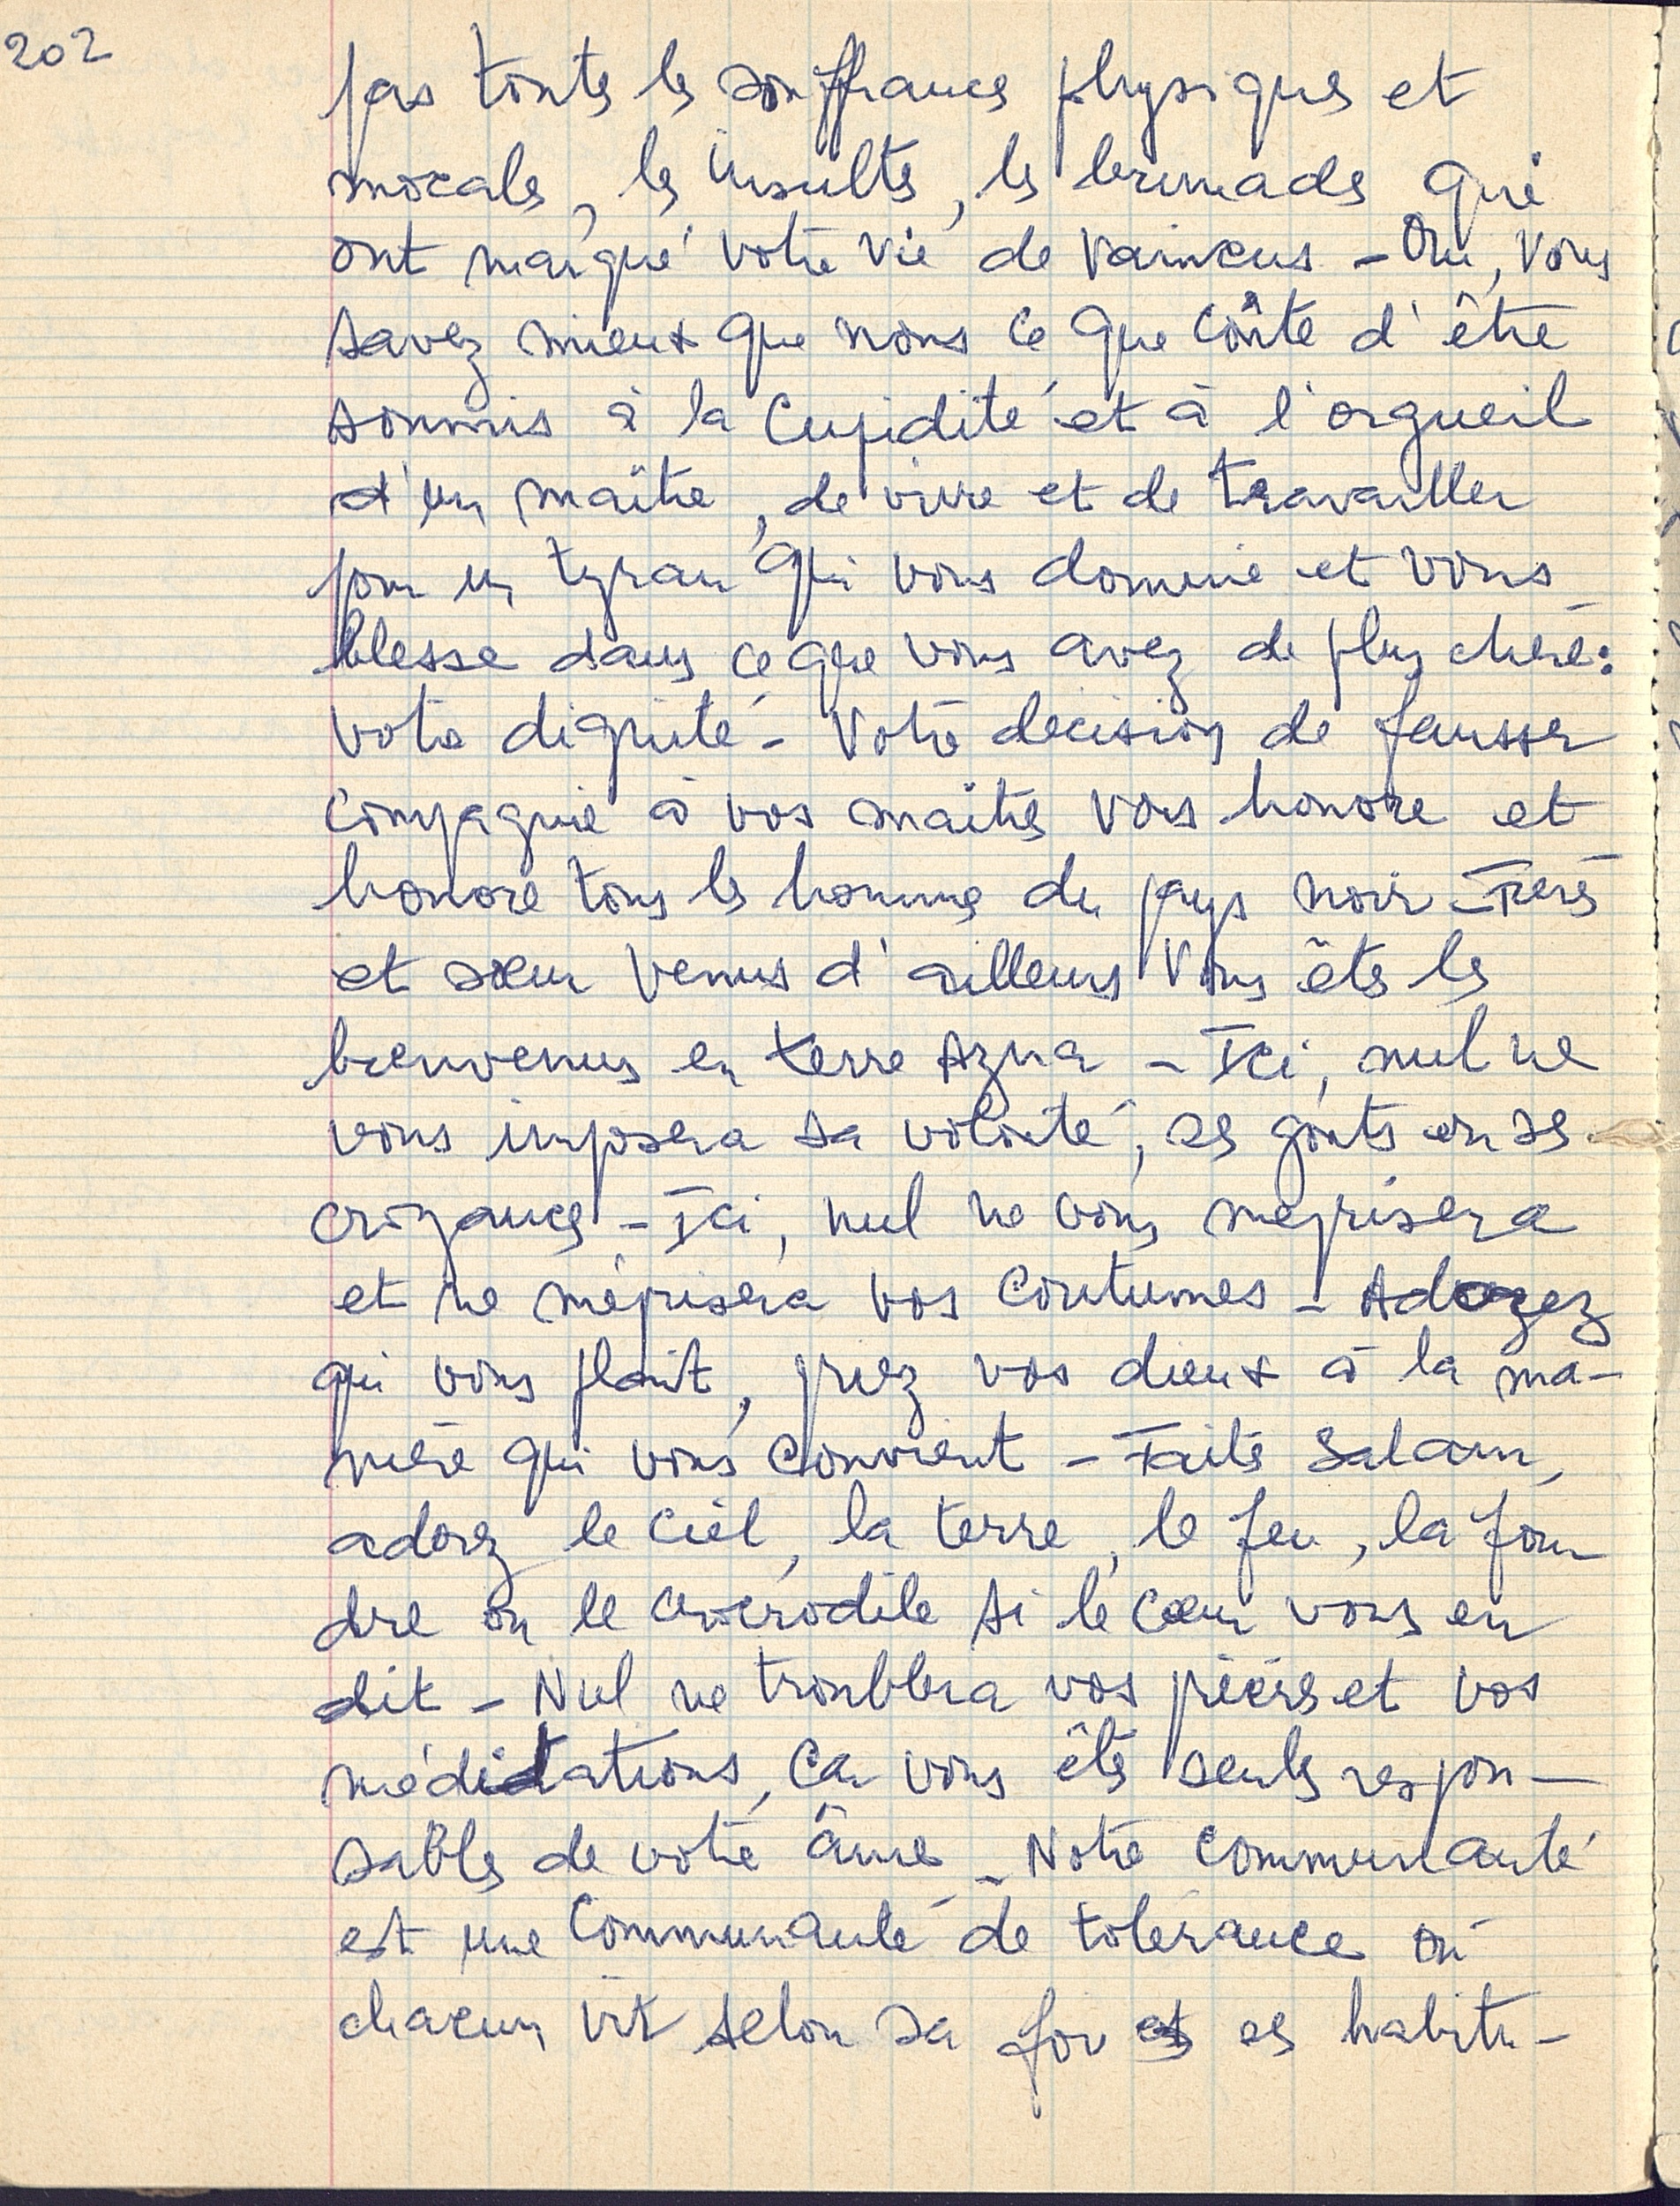 202
pas toutes les souffrances physiques et
morales, les insultes, les brimades qui
ont marqué votre vie de vaincus - Oui, vous
savez mieux que nous ce que coûte d'être
soumis à la cupidité et à l'orgueil
d'un maître, de vivre et de travailler
pour un tyran qui vous domine et vous
blesse dans ce que vous avez de plus cher :
votre dignité - Votre décision de fausser
compagnie à vos maîtres vous honore et
honore tous les hommes du pays noir - Frères
et sœurs venus d'ailleurs vous êtes les
bienvenus en terre Azna - Ici, nul ne
vous imposera sa volonté, ses goûts ou ses
croyances - Ici, nul ne vous méprisera
et ne méprisera vos coutumes - Adorez
qui vous plaît, priez vos dieux à la ma-
nière qui vous convient - Faites salam,
adorez le ciel, la terre, le feu, la fou-
dre ou le crocodile si le cœur vous en
dit - Nul ne troublera vos prières et vos
méditations, car vous êtes seuls respon-
sables de votre âme - Notre communauté
est une communauté de tolérance où
chacun vit selon sa foi et ses habitu-